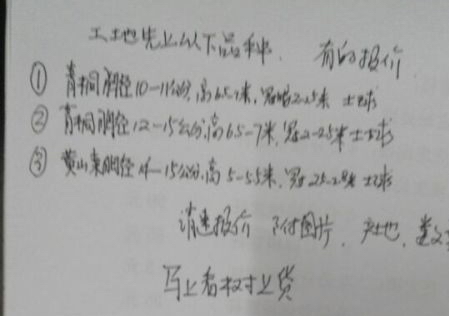 工地先上以下品种、有的报价
① 青桐胸径10-11公分,高6.5-7米,冠幅2-2.5米 土球
② 青桐胸径12-15公分,高6.5-7米,冠2-2.5米 土球
③ 黄山栾胸径14-15公分,高5-5.5米,冠2.5-2.8米 土球
请速报价 附图片、产地、
马上看树上货